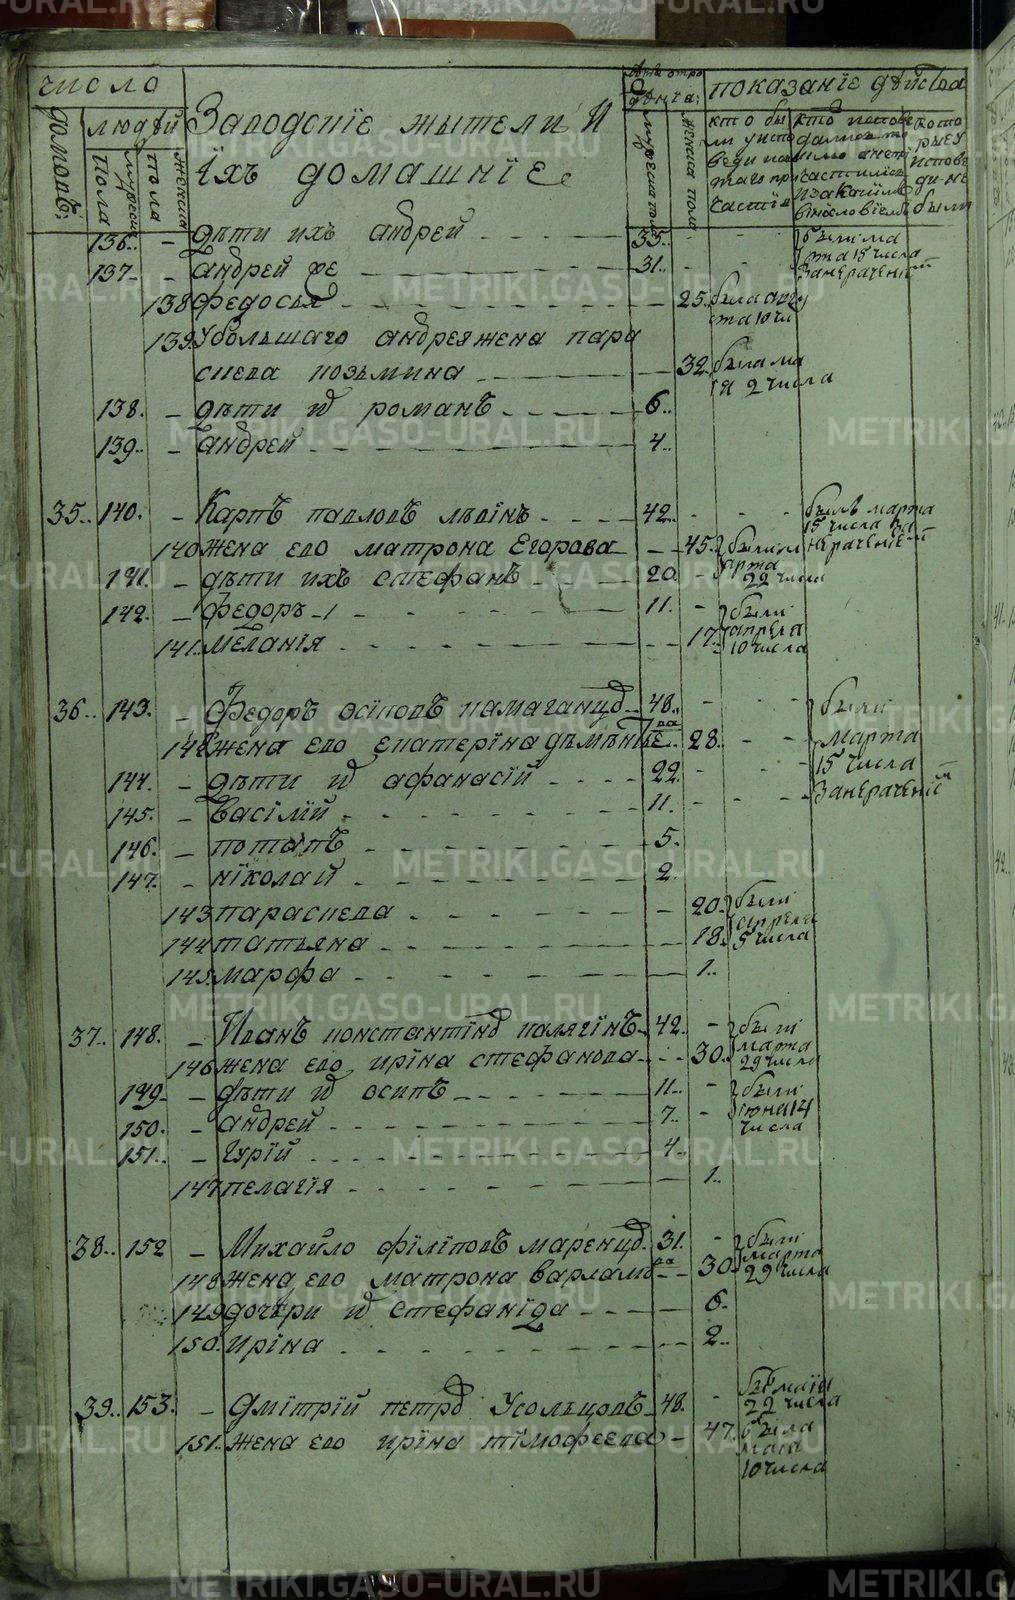 число
домовъ.
людей
мужеска пола
женска пола
Заводскіе жытели и
їхъ домашнїе
лѣта отро
дѣнїа:
мужеска пола
женска пола
показанїе дѣйства
кто бы
ли уиспо
веди
таго при
частїя
кто испов
дались то
кото
рыеу
испове
ди не
были
136. - дѣти ихъ андрей 35. были ма
рта 15 числа
занераченїе
137. - андрей же 31.
138 федосья 25. была авгу
ста 10 чи
139. убольшаго андрея жена пара
скева козьмина 32. была ма
я 2 числа
138. - дѣти и романъ 6.
139. - андрей 4.
35. 140. - Карпъ павловъ лѣвїнъ 42. былъ марта
15 числа за
нераченїе
140 жена его матрона Егорова 45. были м
арта
22 числа
141. - дѣти ихъ стефанъ 20
142. - федоръ 11. были
апреля
10 числа
141. меланїя 17.
36. 143. - Федоръ осїповъ камаганцо 48. были
марта
15 числа
занераченїе
142 жена его екатерїна 28.
144. - дѣти и афанасїй 22.
145. - василїй 11.
146. - потапъ 5.
147. - нїколай 2.
143 параскева 20. были
апреля
5 числа
144 татьяна 18.
145. марфа 1.
37. 148. - Иванъ константїно калягїнъ 42. были
марта
29 числа
146 жена его ирїна стефанова 30.
149. - дѣти и осипъ 11. были
їюня 14
числа
150. - андрей 7.
151. - гурїй 4.
147 пелагїя 1.
38. 152 - Михайло филїповъ маренцо 31. были
марта
29 числа
148 жена его матрона варламо
ва 30.
149 дочери и стефанїда 6.
150. ирїна 2.
39. 153. - Дмїтрїй петро Усольцовъ 48. бы маїя
22 числа
151. жена его ирїна тїмофеева 47. была
маїя
10 числа
METRIKI.GASO-URAL.RU